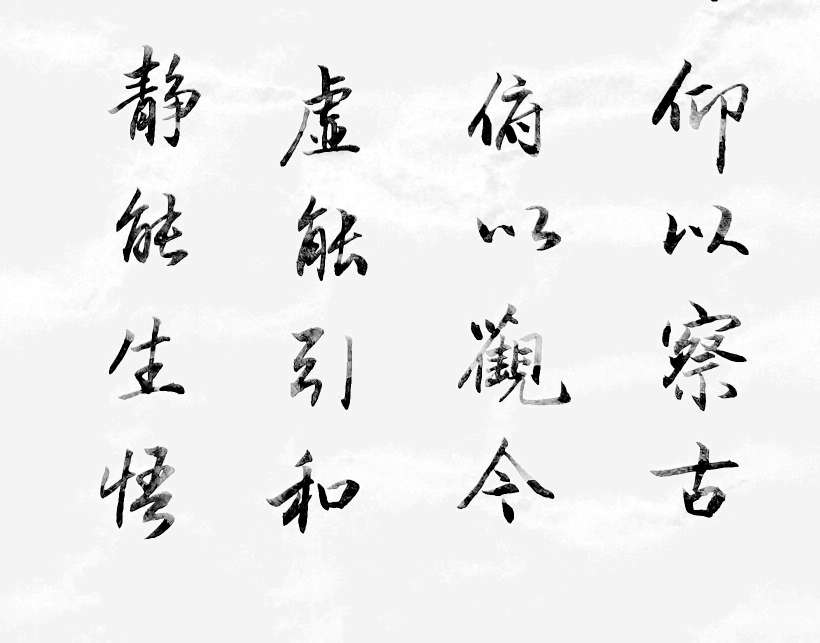 仰以察古
俯以觀今
虚能引和
静能生悟